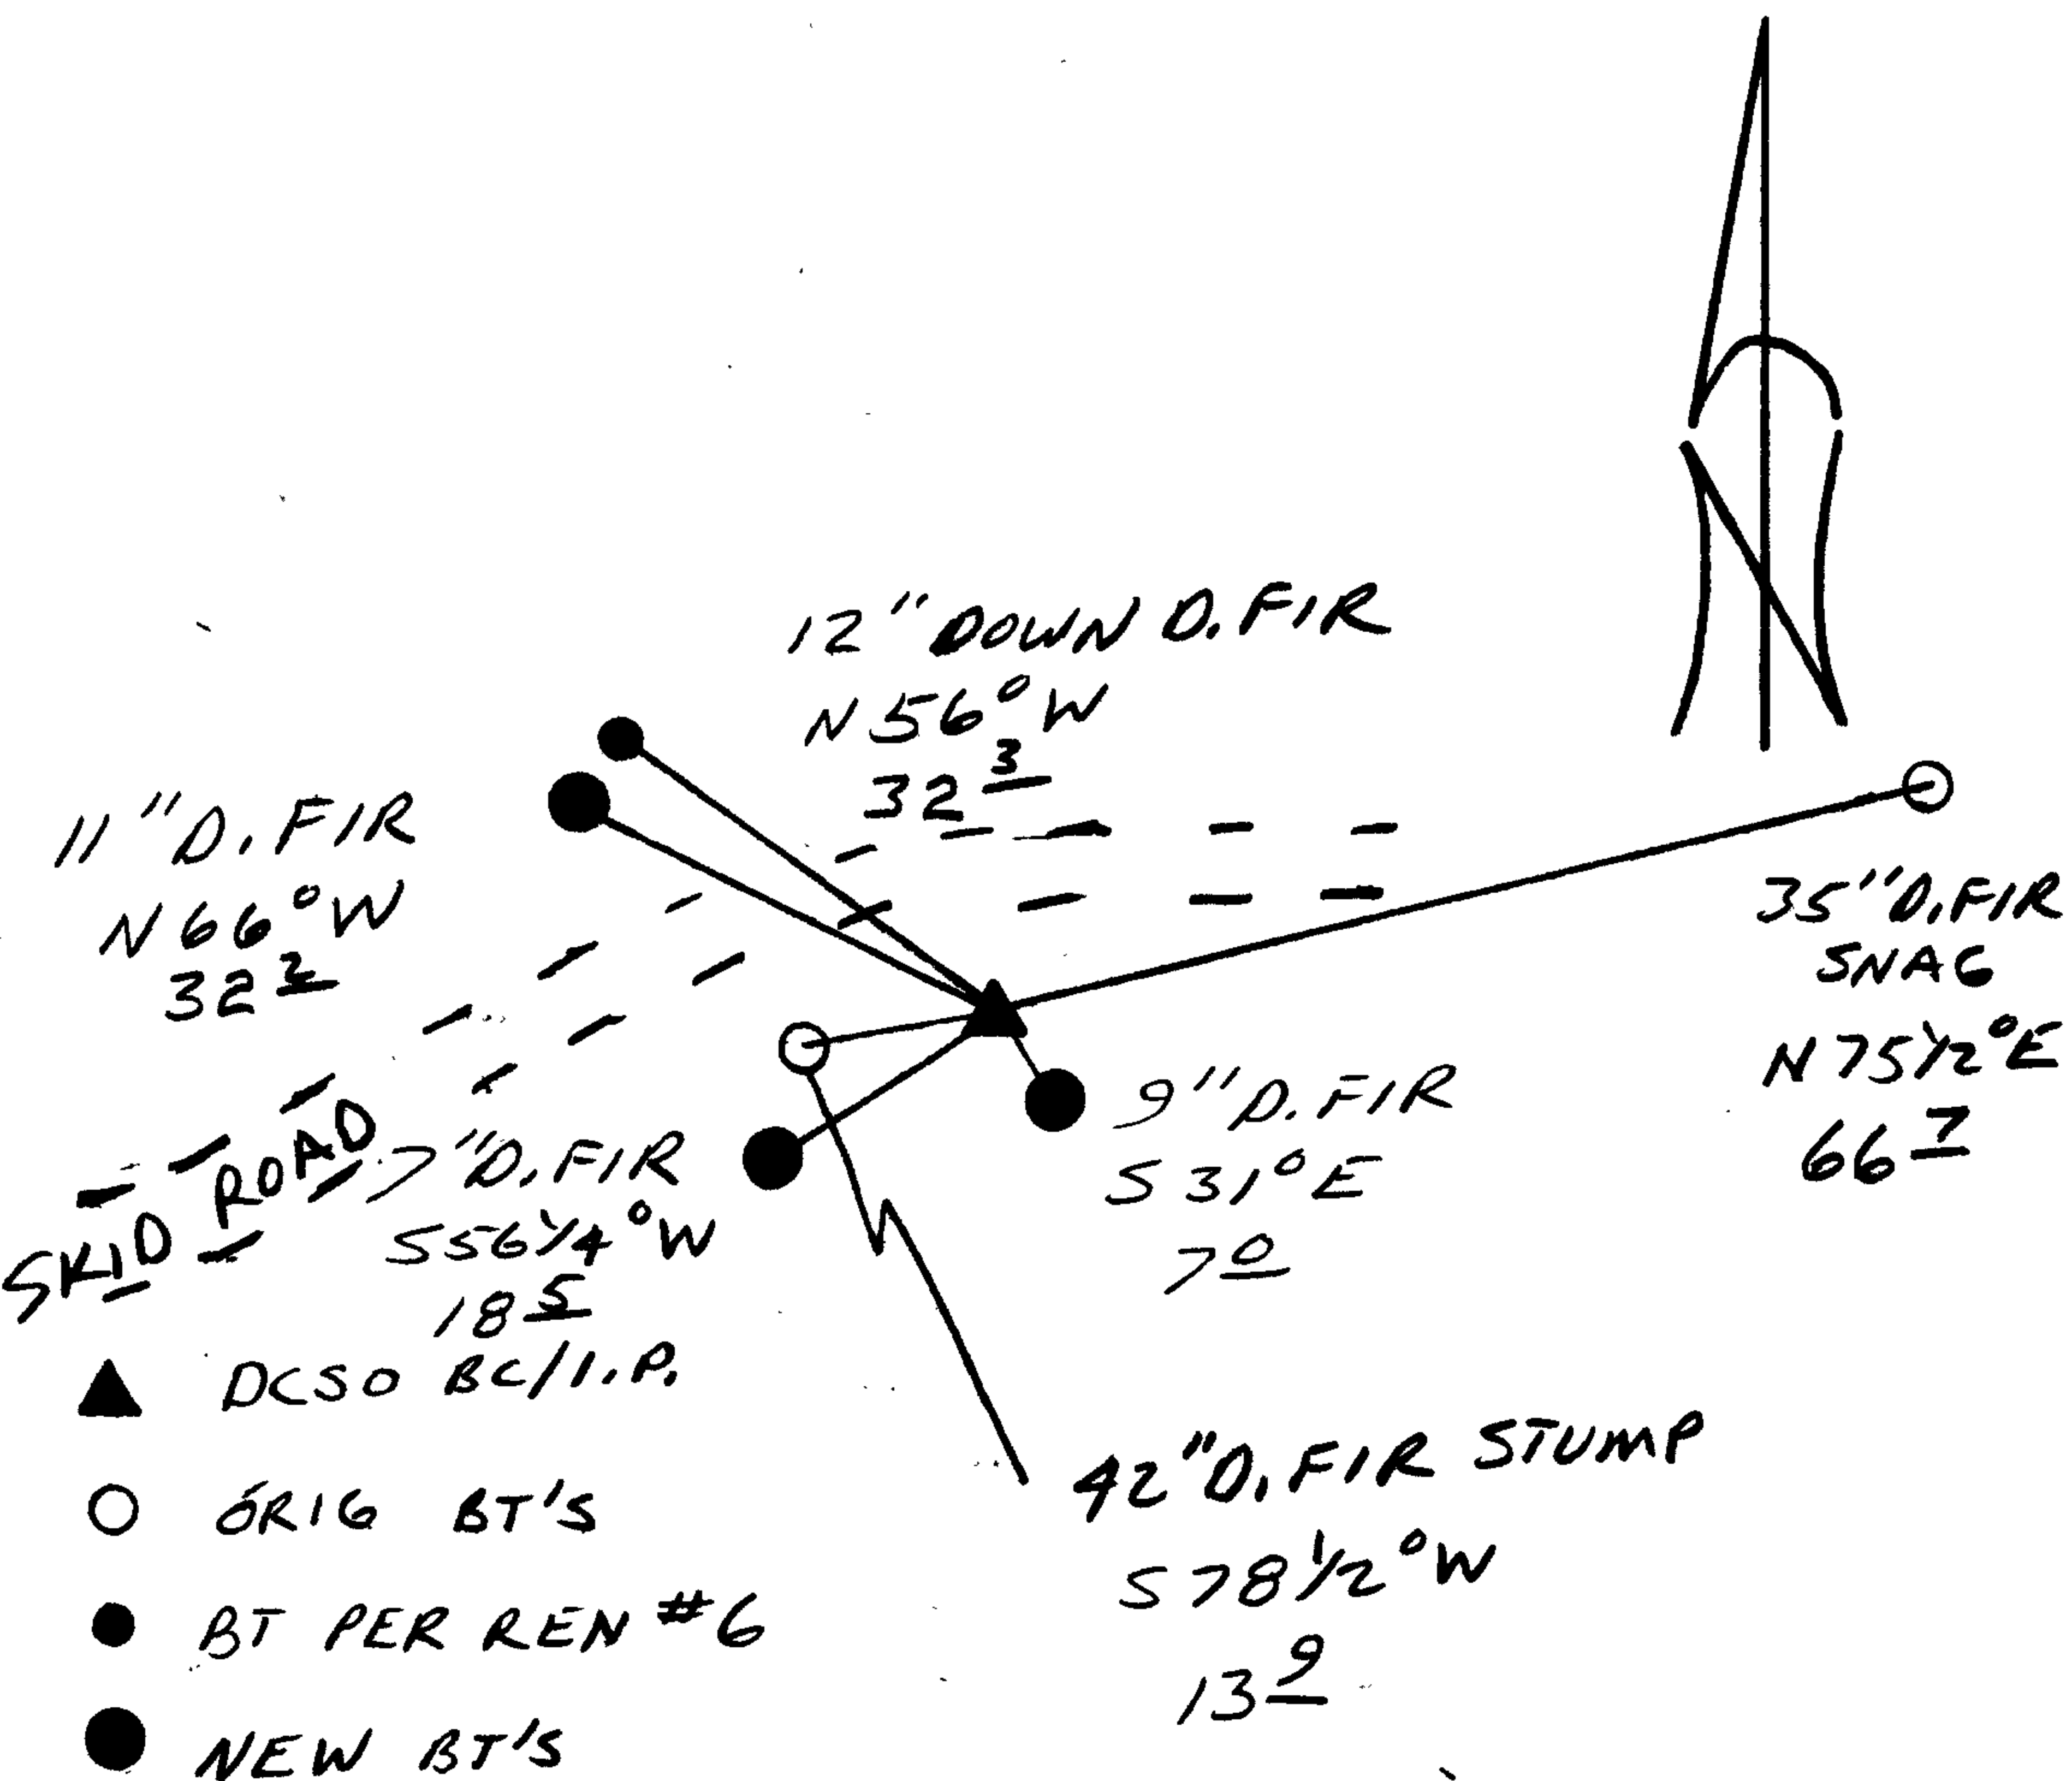 N
12" DOWN D. FIR
N 56° W
32 3
11" D. FIR
N 66° W
32 2
35" D. FIR
SNAG
N 75 1/2° E
66 7
9" D. FIR
S 31° E
7 0
SKID ROAD
7" D. FIR
S 56 1/4° W
18 5
DCSO BC/I.P.
42" D. FIR STUMP
S 78 1/2° W
13 9
ORIG BT'S
BT PER REN #6
NEW BT'S